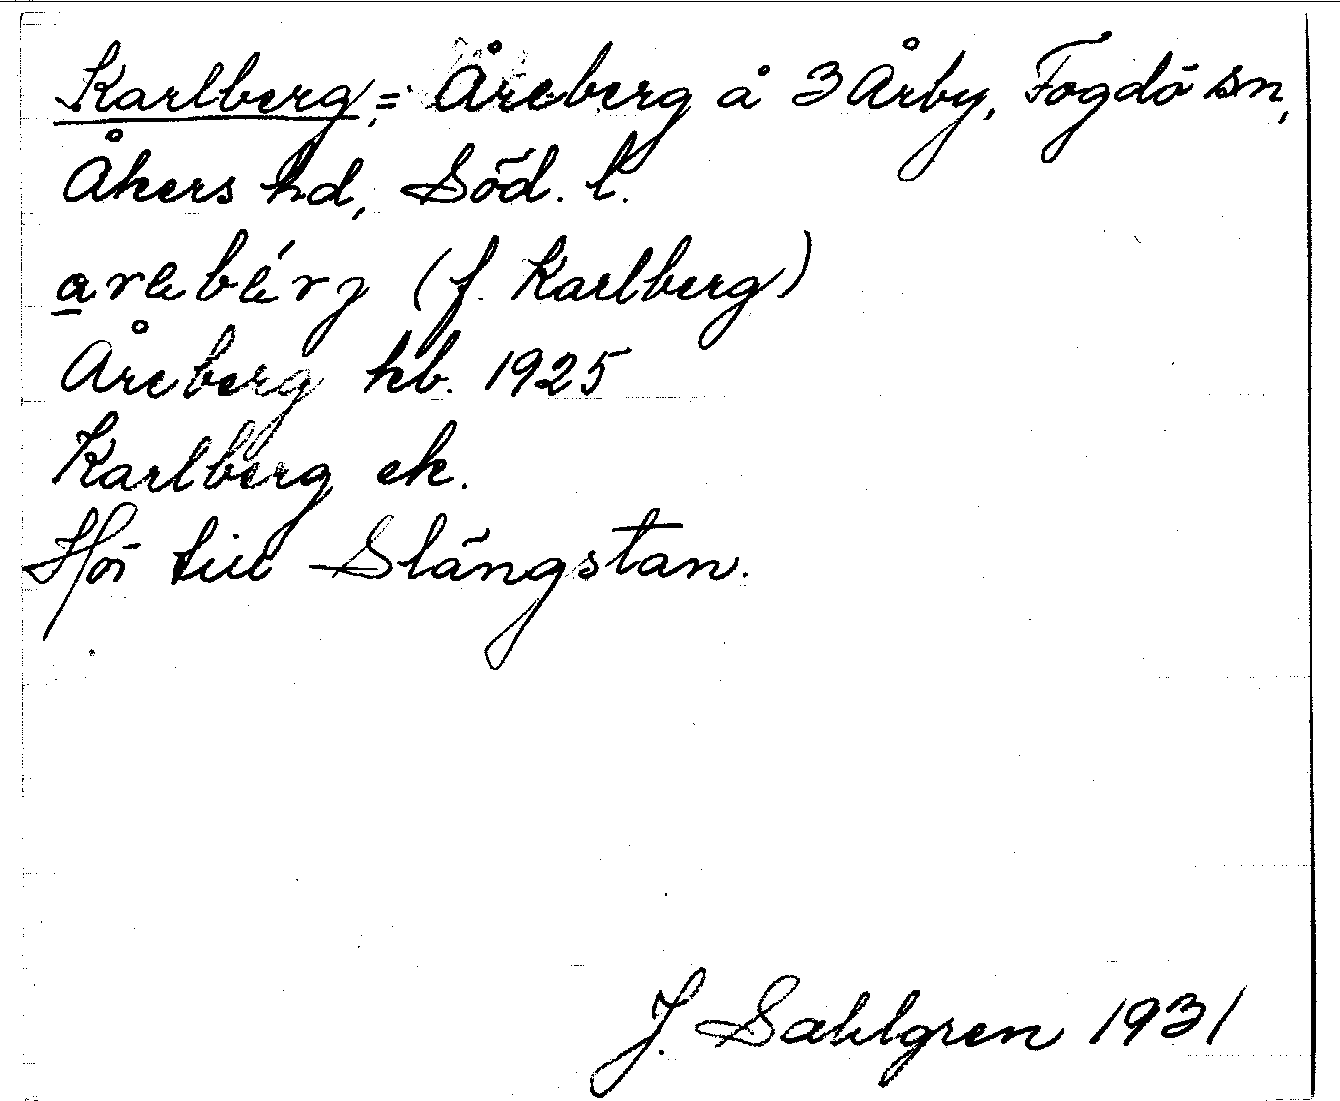 Karlberg, = Åreberg å 3 Årby, Fogdö sn,
Åkers hd, Söd. l.
a̲rebérj (f. Karlberg)
Åreberg hb. 1925
Karlberg ek.
Hör till Slängstan.
J. Sahlgren 1931